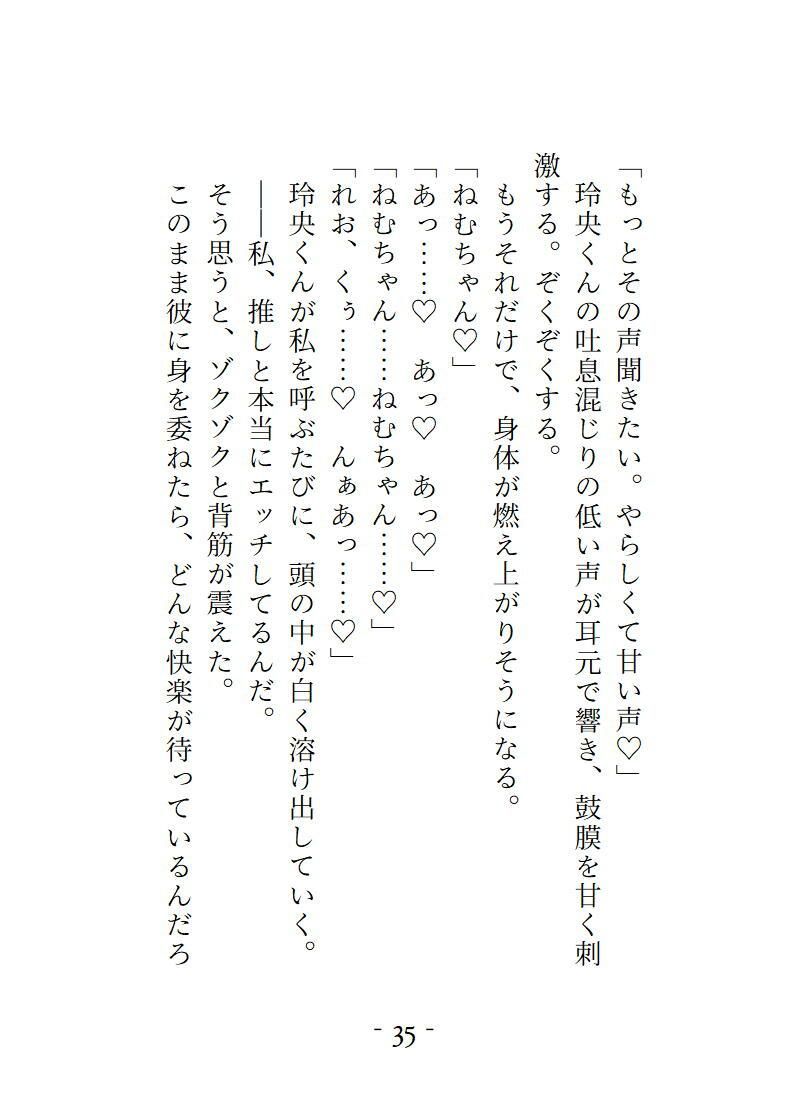 「もっとその声聞きたい。やらしくて甘い声♡」
　玲央くんの吐息混じりの低い声が耳元で響き、鼓膜を甘く刺
激する。ぞくぞくする。
　もうそれだけで、身体が燃え上がりそうになる。
「ねむちゃん♡」
「あっ……♡　あっ♡　あっ♡」
「ねむちゃん……ねむちゃん……♡」
「れお、くぅ……♡　んぁあっ……♡」
　玲央くんが私を呼ぶたびに、頭の中が白く溶け出していく。
　――私、推しと本当にエッチしてるんだ。
　そう思うと、ゾクゾクと背筋が震えた。
　このまま彼に身を委ねたら、どんな快楽が待っているんだろ
- 35 -